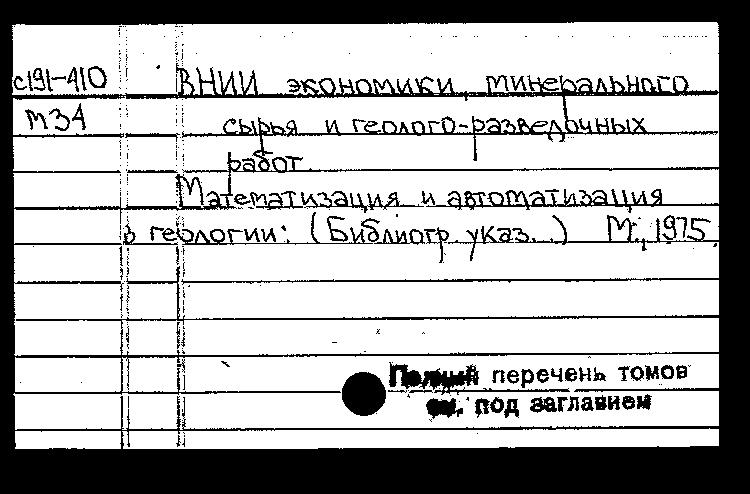 с191-410 ВНИИ экономики минерального
М34 сырья и геолого-разведочных
работ.
Математизация и автоматизация
в геологии: (Библиогр. указ..) М., 1975.
Полный перечень томов
см. под заглавием